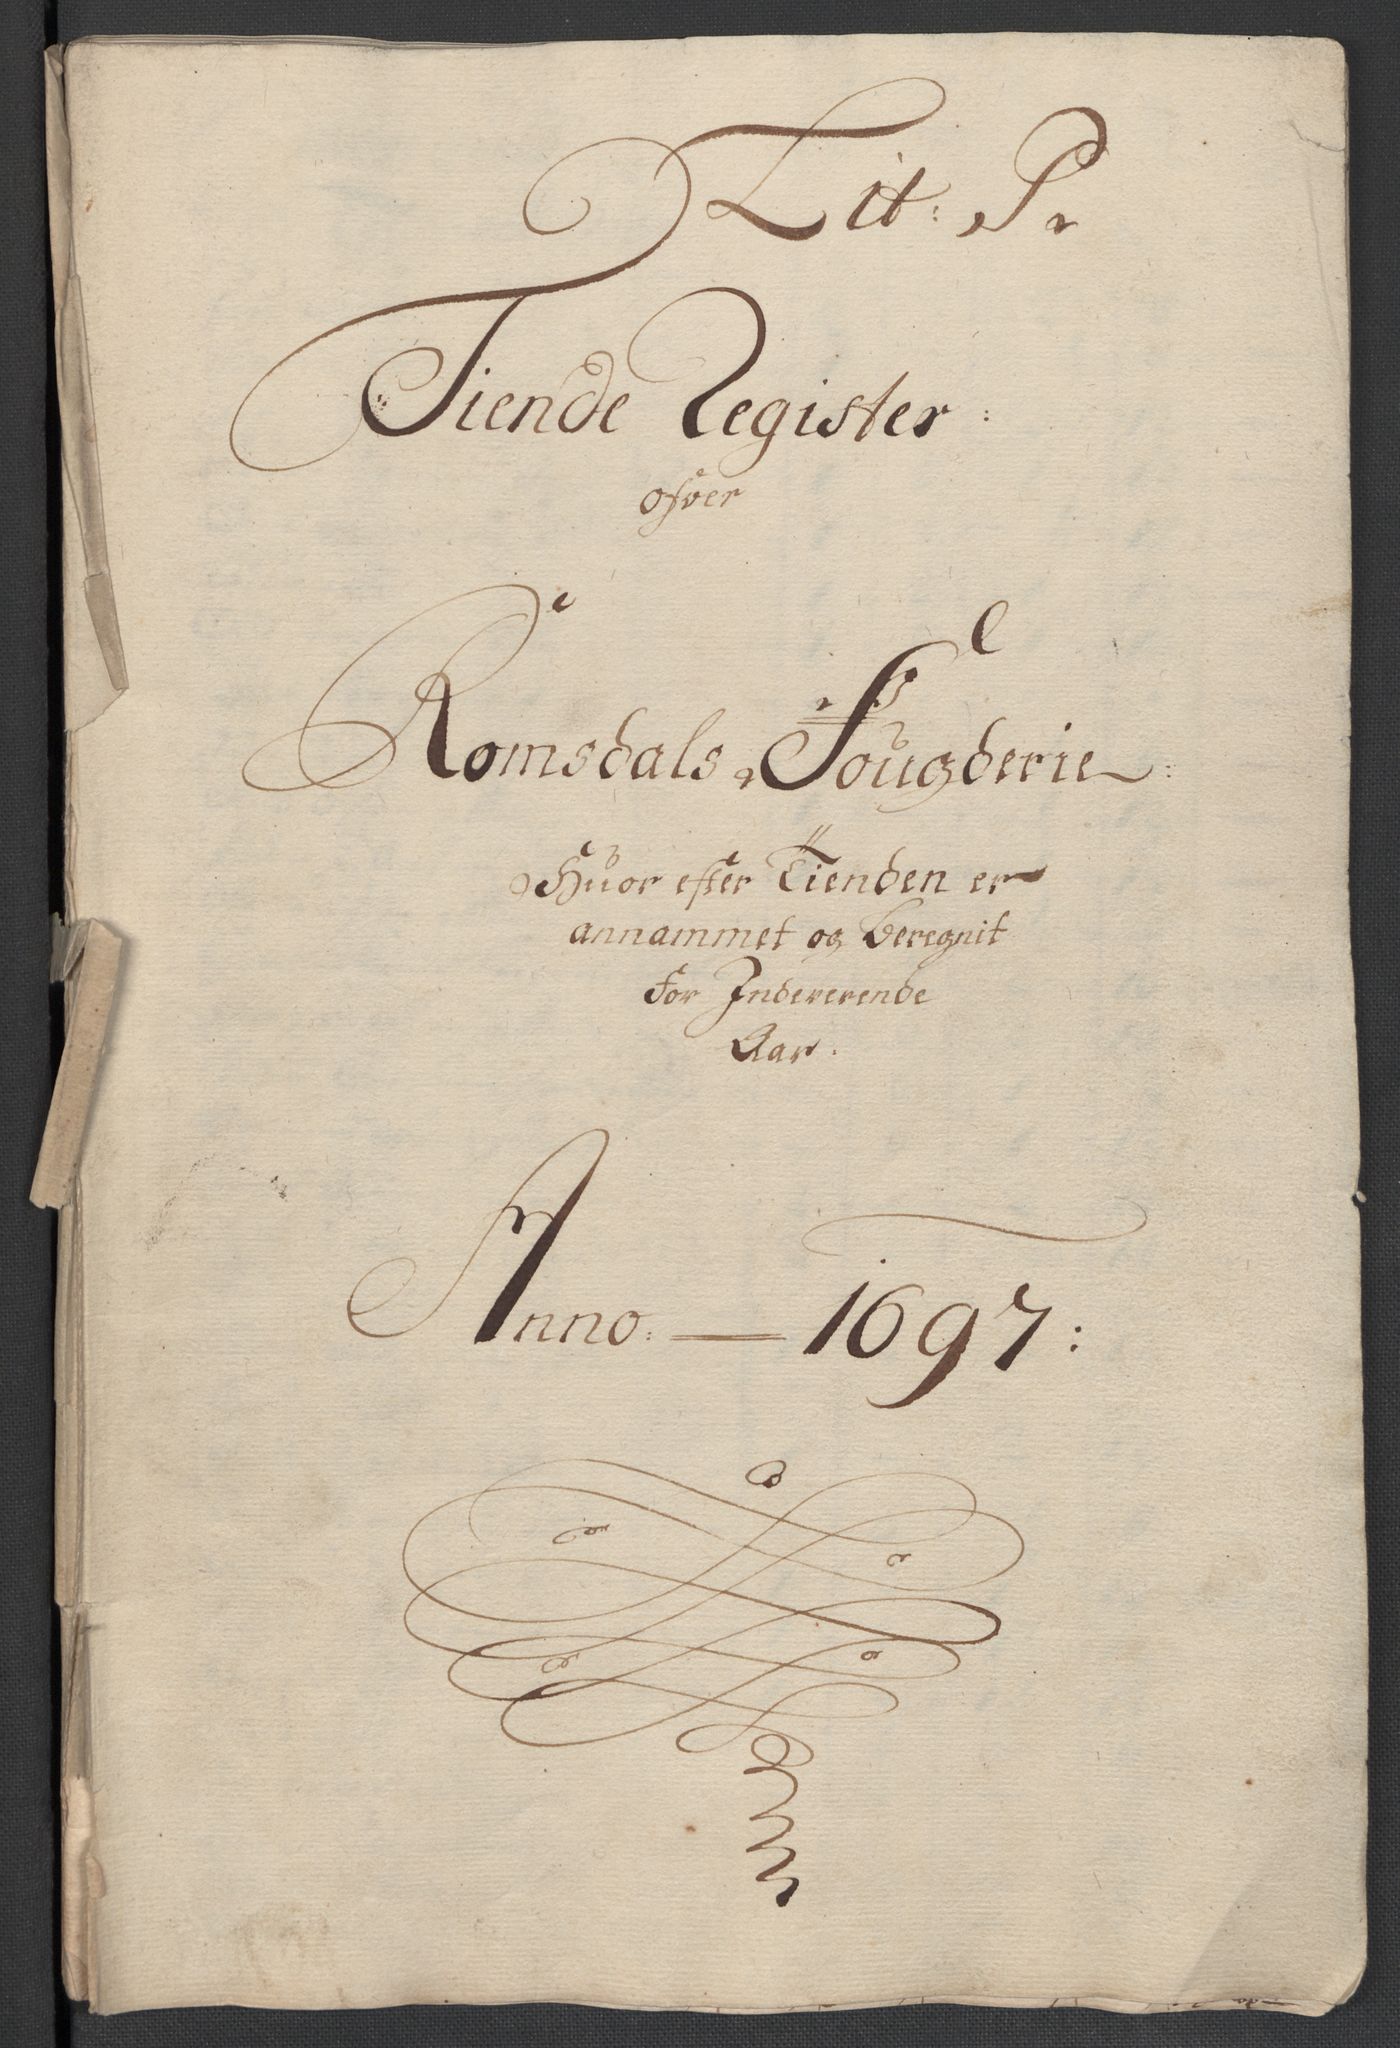 Lit: P.
Tiende Register:
ofver
Romsdals Fougderie:
Huor efter Tienden er
annammet og beregnit
for Indeverende
Aar.
Anno: — 1697: